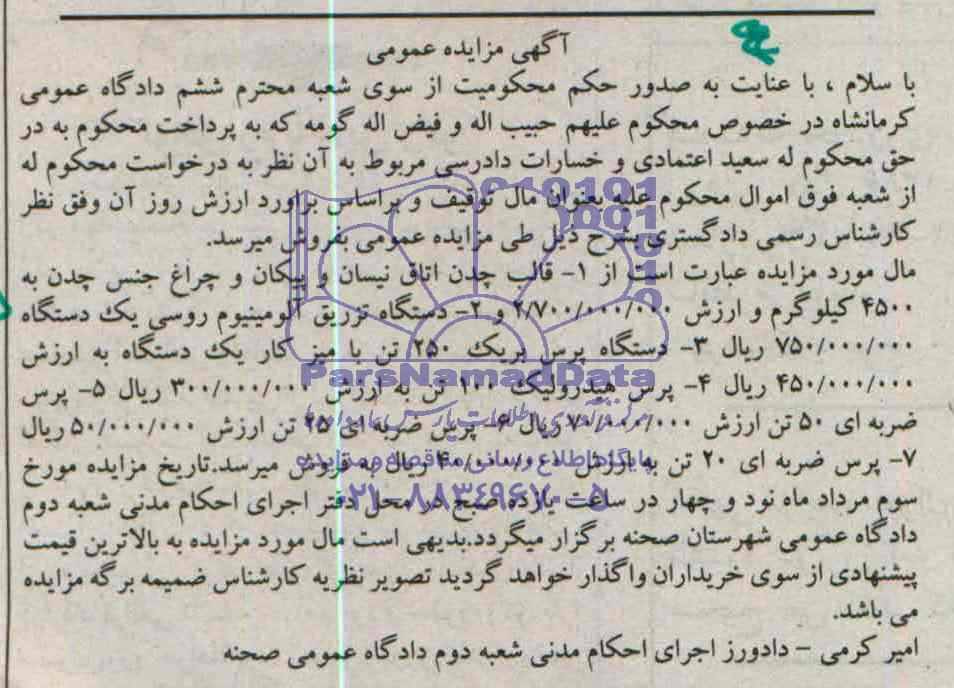 آگهی مزایده عمومی
با سلام ، با عنایت به صدور حکم محکومیت از سوی شعبه محترم ششم دادگاه عمومی
کرمانشاه در خصوص محکوم علیهم حبیب اله و فیض اله گومه که به پرداخت محکوم به در
حق محکوم له سعید اعتمادی و خسارات دادرسی مربوط به آن نظر به درخواست محکوم له
از شعبه فوق اموال محکوم علیه بعنوان مال توقیف و براساس براورد ارزش روز آن وفق نظر
کارشناس رسمی دادگستری بشرح ذیل طی مزایده عمومی بفروش میرسد.
مال مورد مزایده عبارت است از ۱- قالب چدن اتاق نیسان و پیکان و چراغ جنس چدن به
۴۵۰۰ کیلوگرم و ارزش ۲/۷۰۰/۰۰۰/۰۰۰ و ۲- دستگاه تزریق آلومینیوم روسی یک دستگاه
۷۵۰/۰۰۰/۰۰۰ ریال ۳- دستگاه پرس بریک ۲۵۰ تن با میز کار یک دستگاه به ارزش
۴۵۰/۰۰۰/۰۰۰ ریال ۴- پرس هیدرولیک ۱۰۰ تن به ارزش ۳۰۰/۰۰۰/۰۰۰ ریال ۵- پرس
ضربه ای ۵۰ تن ارزش ۷۰/۰۰۰/۰۰۰ ریال ۶- پرس ضربه ای ۲۵ تن ارزش ۵۰/۰۰۰/۰۰۰ ریال
۷- پرس ضربه ای ۲۰ تن به ارزش ۴۰/۰۰۰/۰۰۰ ریال به فروش میرسد.تاریخ مزایده مورخ
سوم مرداد ماه نود و چهار در ساعت یازده صبح در محل دفتر اجرای احکام مدنی شعبه دوم
دادگاه عمومی شهرستان صحنه برگزار میگردد.بدیهی است مال مورد مزایده به بالاترین قیمت
پیشنهادی از سوی خریداران واگذار خواهد گردید تصویر نظریه کارشناس ضمیمه برگه مزایده
می باشد.
امیر کرمی - دادورز اجرای احکام مدنی شعبه دوم دادگاه عمومی صحنه
ParsNamadData
مرکز فرآوری اطلاعات پارس نماد داده ها
پایگاه اطلاع رسانی مناقصه و مزایده
۰۲۱-۸۸۳۴۹۶۷۰-۵